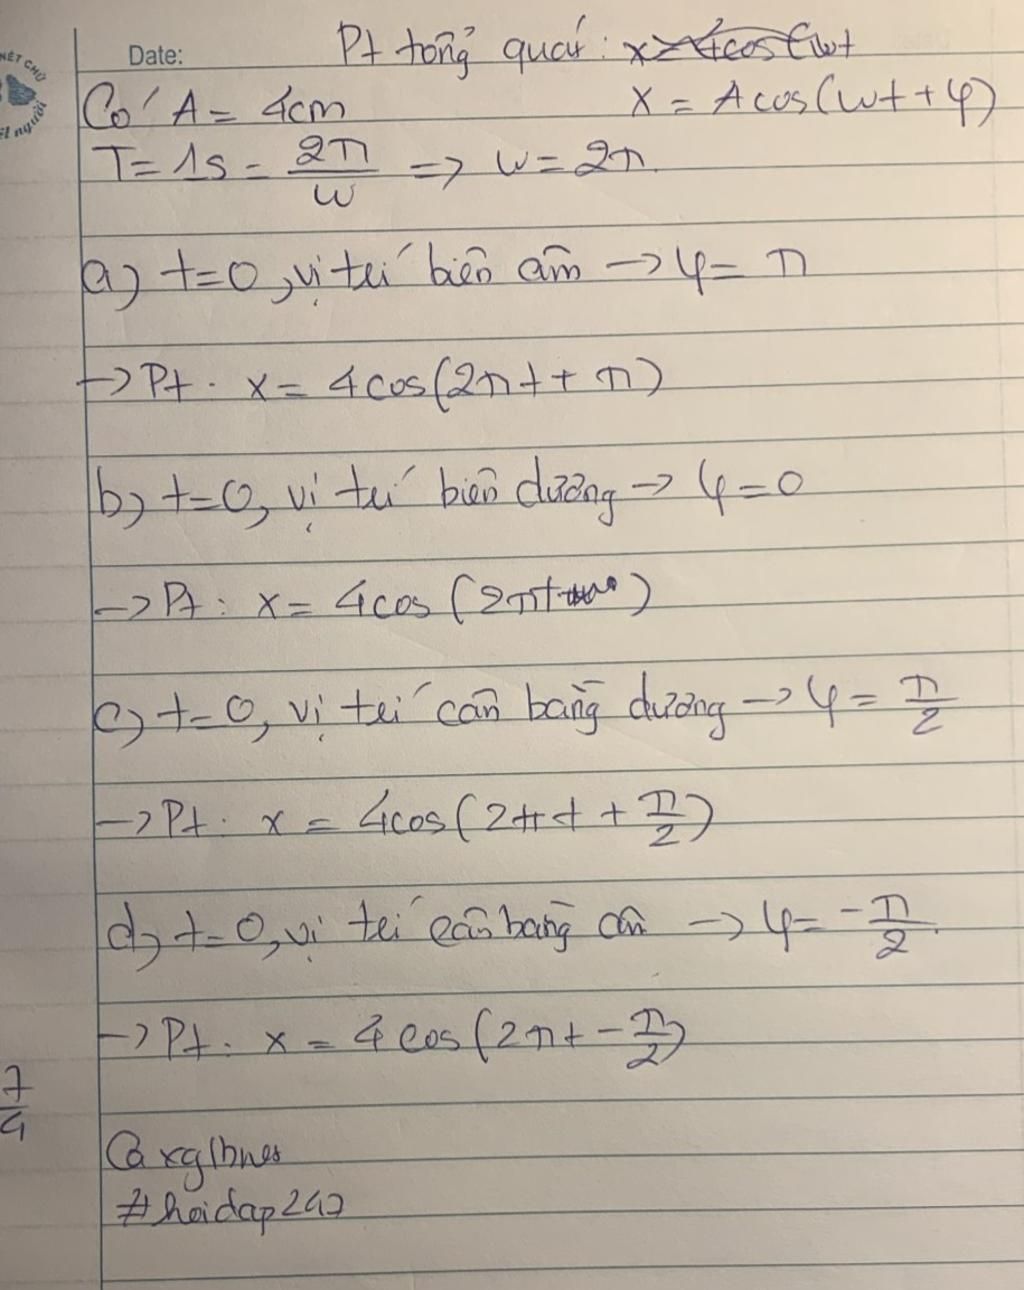 NÉT CHỮ
Date:
Pt tổng quát: x=4cos(wt
Có A = 4cm
x = Acos(wt+φ)
T= 1s = 2π/w => w = 2π.
a) t=0, vị trí biên âm -> φ = π
-> Pt: x = 4cos(2πt + π)
b) t=0, vị trí biên dương -> φ=0
-> Pt: x = 4cos (2πt)
c) t=0, vị trí cân bằng dương -> φ = π/2
-> Pt: x = 4cos(2πt + π/2)
d) t=0, vị trí cân bằng âm -> φ = -π/2.
-> Pt: x = 4cos(2πt - π/2)
7/4
#hoidap247